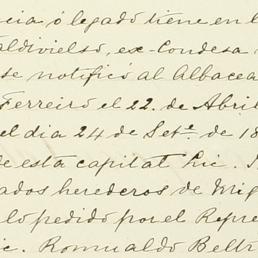 cia, ó legado tiene en l
aldivielso, ex-Condesa
se notificó al Albacea
Ferreiro el 22. de Abril
el dia 24 de Setᵉ. de 18
de esta capital Lic.
ados herederos de Mig
lo pedido por el Repre
ic. Romualdo Beltr